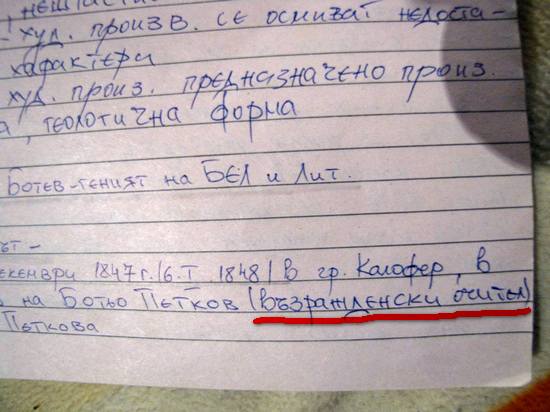 - худ. произв. се осмиват недоста-
характери
худ. произ. предназначено произ.
а, теологична форма
Ботев-геният на БЕЛ и Лит.
ът -
екември 1847 г. /6. I. 1848/ в гр. Калофер, в
на Ботьо Петков (възрожденски очител)
Петкова